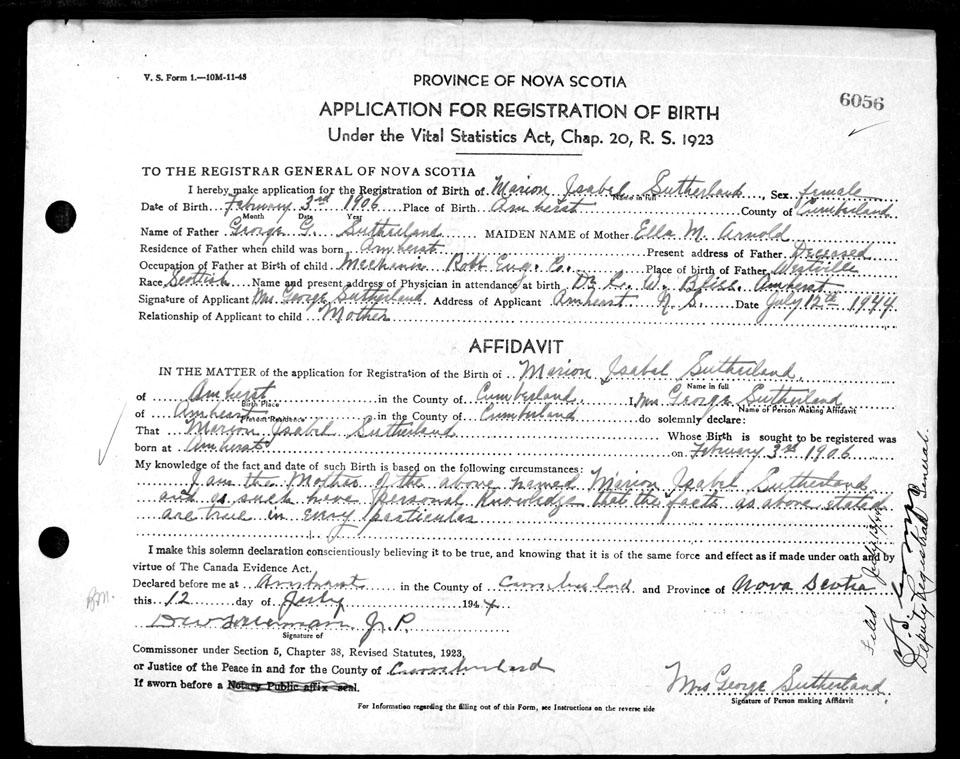 V. S. Form 1.—10M-11-43
PROVINCE OF NOVA SCOTIA
6056
APPLICATION FOR REGISTRATION OF BIRTH
Under the Vital Statistics Act, Chap. 20, R. S. 1923
TO THE REGISTRAR GENERAL OF NOVA SCOTIA
I hereby make application for the Registration of Birth of Marion Isabel Sutherland, Sex female
Name in full
Date of Birth February 3rd 1906 Place of Birth Amherst County of Cumberland
Month Date Year
Name of Father George G. Sutherland MAIDEN NAME of Mother Ella M. Arnold
Residence of Father when child was born Amherst Present address of Father Deceased
Occupation of Father at Birth of child Mechanic Robb Eng. Co. Place of Birth of Father Westville
Race Scotish Name and present address of Physician in attendance at birth Dr C. W. Bliss. Amherst
Signature of Applicant Mrs. George Sutherland Address of Applicant Amherst N. S. Date July 12th 1944
Relationship of Applicant to child Mother
AFFIDAVIT
IN THE MATTER of the application for Registration of the Birth of Marion Isabel Sutherland
Name in full
of Amherst in the County of Cumberland I, Mrs George Sutherland
Birth Place Name of Person Making Affidavit
of Amherst in the County of Cumberland do solemnly declare:
Present Residence
That Marion Isabel Sutherland Whose Birth is sought to be registered was
born at Amherst on February 3rd 1906
My knowledge of the fact and date of such Birth is based on the following circumstances:
I am the Mother of the above named Marion Isabel Sutherland
and as such have personal knowledge that the facts as above stated
are true in every particular
I make this solemn declaration conscientiously believing it to be true, and knowing that it is of the same force and effect as if made under oath and by
virtue of The Canada Evidence Act.
Declared before me at Amherst in the County of Cumberland and Province of Nova Scotia
this 12 day of July 1944
J. P.
Signature of
Commissioner under Section 5, Chapter 38, Revised Statutes, 1923,
or Justice of the Peace in and for the County of Cumberland
If sworn before a Notary Public affix seal.
Mrs George Sutherland
Signature of Person making Affidavit
For Information regarding the filling out of this Form, see Instructions on the reverse side
Filed July 13/44
Deputy Registrar General.